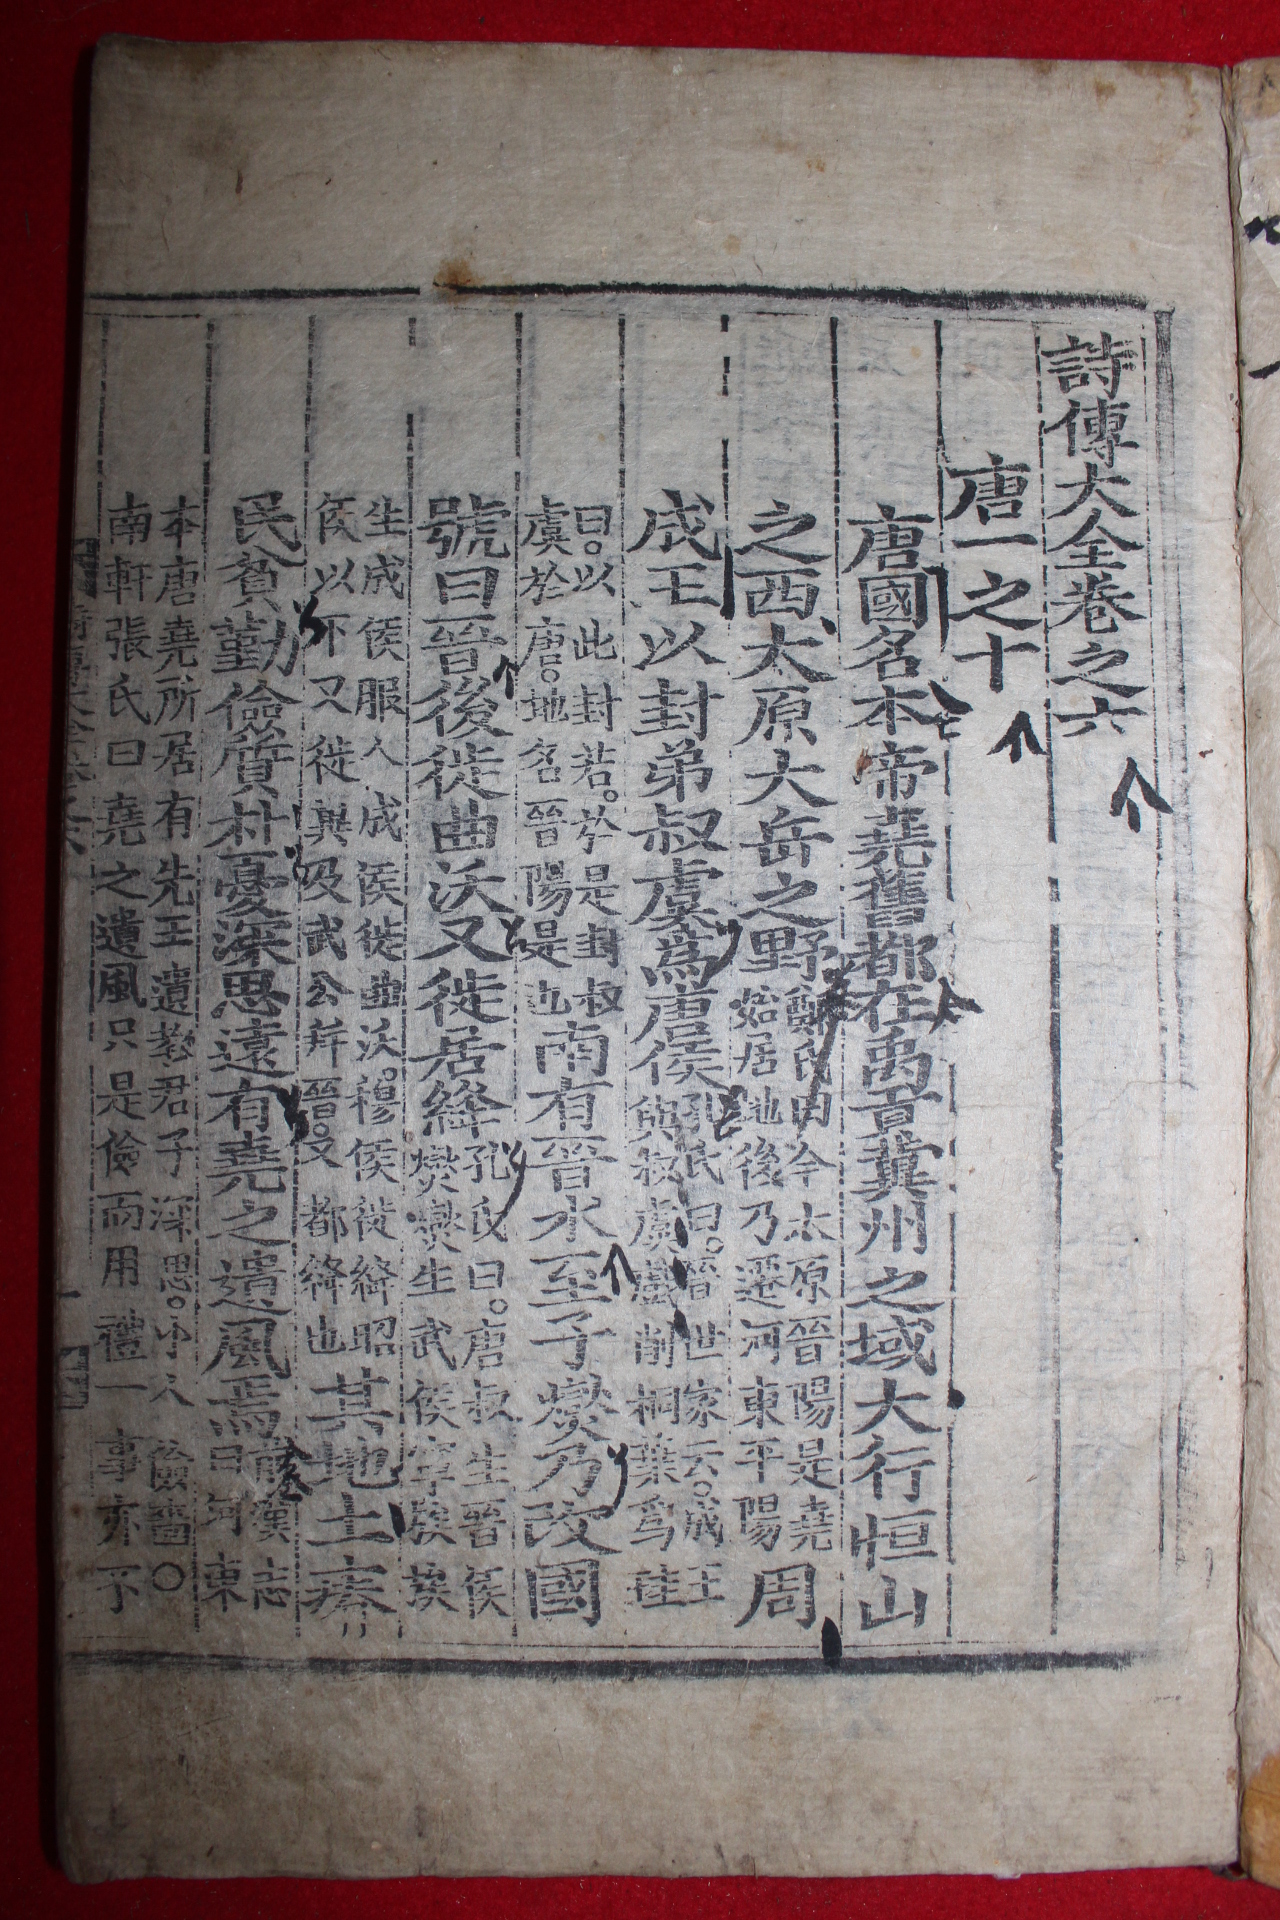 詩傳大全卷之六
唐一之十
唐國名本帝堯舊都在禹貢冀州之域大行恒山
之西太原大岳之野鄭氏曰今太原晉陽是堯始居地後乃遷河東平陽周
成王以封弟叔虞爲唐侯孔氏曰晉世家云成王與叔虞戲削桐葉爲珪
曰以此封若於是封叔虞於唐地名晉陽是也南有晉水至子燮乃改國
號曰晉後徙曲沃又徙居絳孔氏曰唐叔生晉侯燮燮生武侯寧族族
生成侯服人成侯徙曲沃穆侯徙絳昭侯以下又徙翼及武公并晉又都絳也其地土瘠
民貧勤儉質朴憂深思遠有堯之遺風焉前漢志曰河東
本唐堯所居有先王遺敎君子深思小人儉嗇○南軒張氏曰堯之遺風只是儉而用禮一事亦不